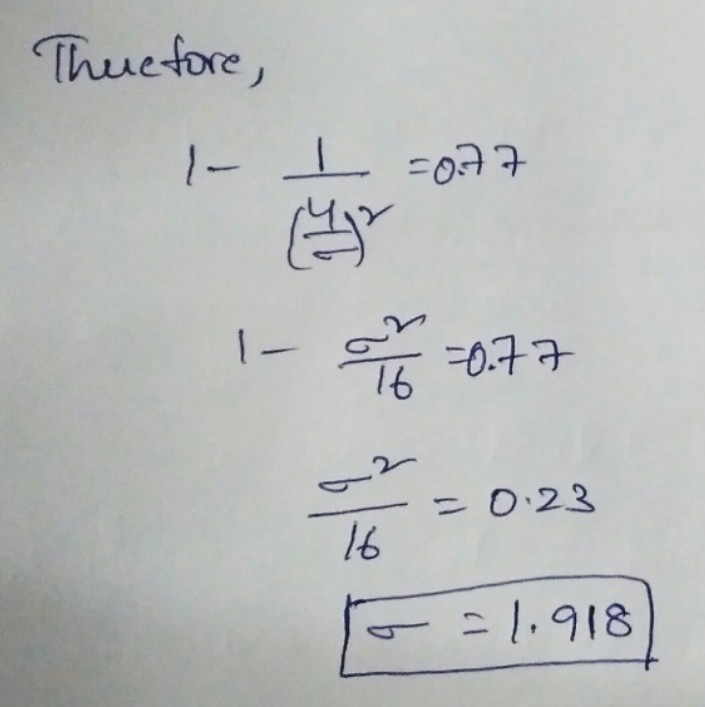 Therefore,
1 - 1/(4/σ)² = 0.77
1 - σ²/16 = 0.77
σ²/16 = 0.23
σ = 1.918